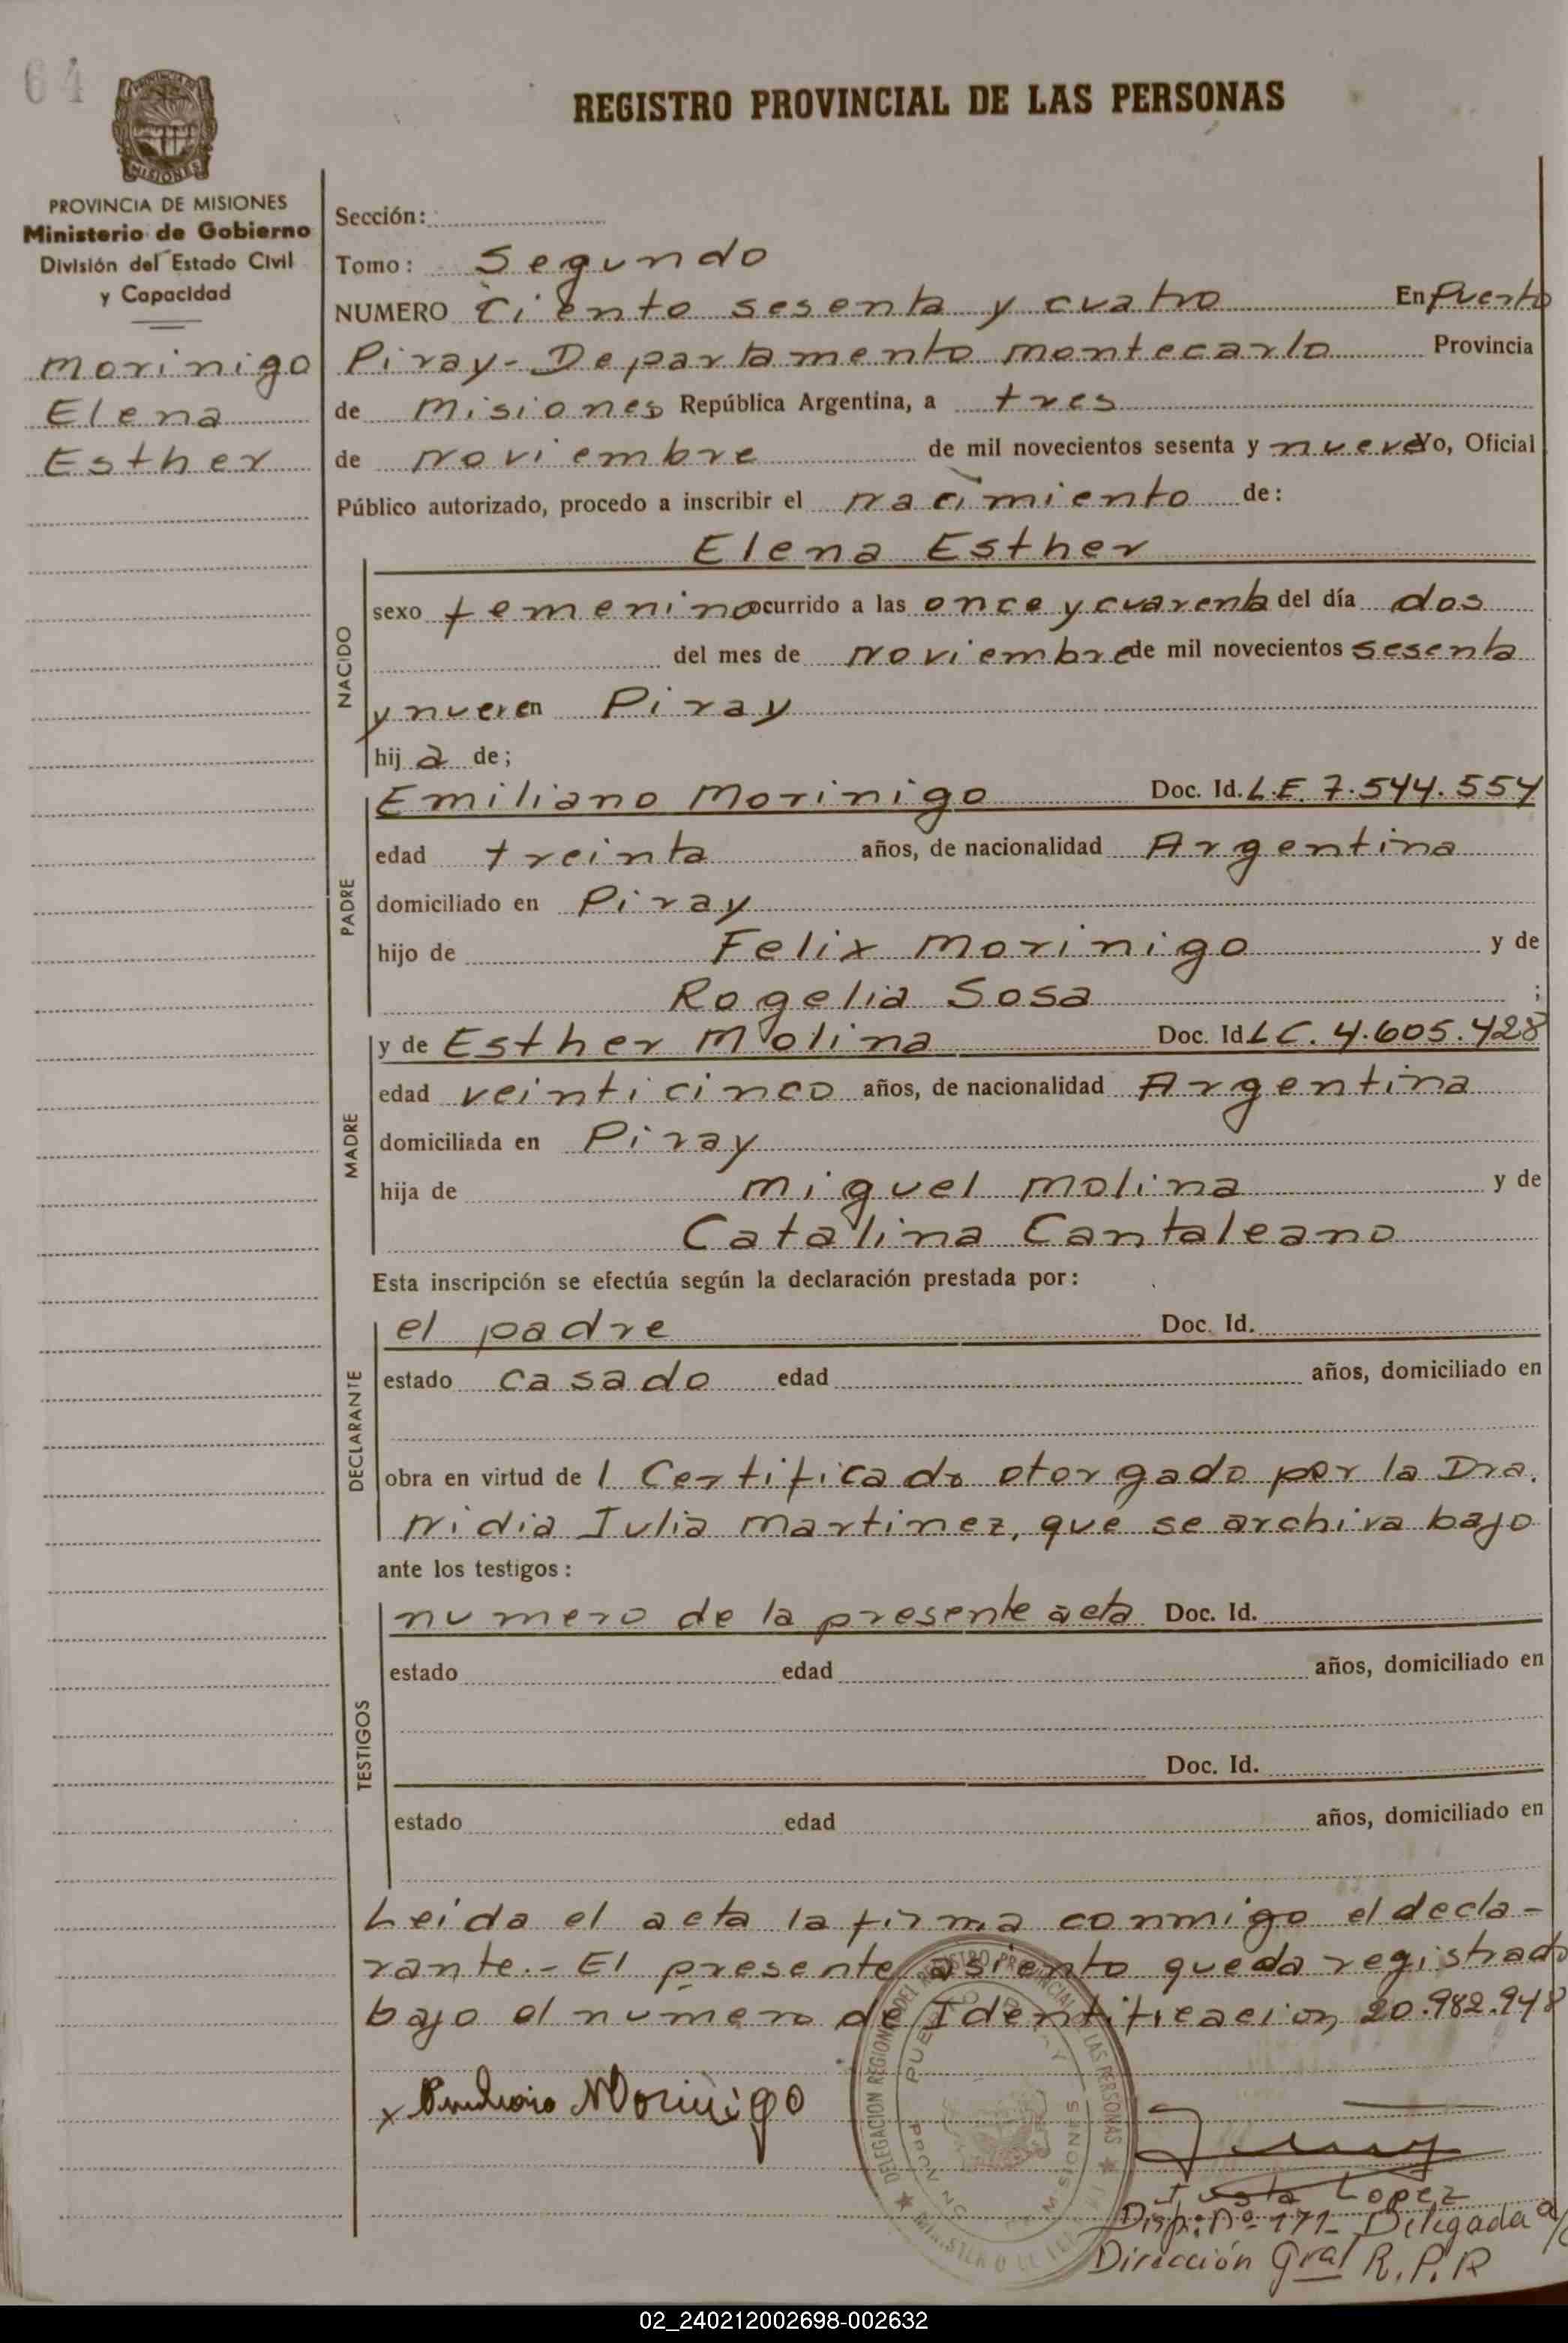 64
PROVINCIA DE
MISIONES
REGISTRO PROVINCIAL DE LAS PERSONAS
PROVINCIA DE MISIONES
Ministerio de Gobierno
División del Estado Civil
y Capacidad
Morinigo
Elena
Esther
Sección:
Tomo: Segundo
NUMERO Ciento sesenta y cuatro En Puerto
Piray - Departamento Montecarlo Provincia
de Misiones República Argentina, a tres
de Noviembre de mil novecientos sesenta y nueve Yo, Oficial
Público autorizado, procedo a inscribir el nacimiento de:
Elena Esther
NACIDO
sexo femenino ocurrido a las once y cuarenta del día dos
del mes de Noviembre de mil novecientos sesenta
y nueve en Piray
hij a de;
PADRE
Emiliano Morinigo Doc. Id. L.E. 7.544.554
edad treinta años, de nacionalidad Argentina
domiciliado en Piray
hijo de Felix Morinigo y de
Rogelia Sosa ;
MADRE
y de Esther Molina Doc. Id LC. 4.605.428
edad veinticinco años, de nacionalidad Argentina
domiciliada en Piray
hija de Miguel Molina y de
Catalina Cantaleano
Esta inscripción se efectúa según la declaración prestada por:
DECLARANTE
el padre Doc. Id.
estado casado edad años, domiciliado en
obra en virtud de 1 Certificado otorgado por la Dra.
Nidia Iulia Martinez, que se archiva bajo
ante los testigos:
TESTIGOS
numero de la presente acta Doc. Id.
estado edad años, domiciliado en
Doc. Id.
estado edad años, domiciliado en
Leida el acta la firma conmigo el decla-
rante.- El presente asiento queda registrado
bajo el numero de Identificacion 20.982.948
x Morinigo
DELEGACION REGIONAL DEL REGISTRO PROVINCIAL DE LAS PERSONAS
PUERTO PIRAY
MISIONES
Justa Lopez
Disp. Nº 171- Delegada a/c
Dirección Gral R.P.P
02_240212002698-002632